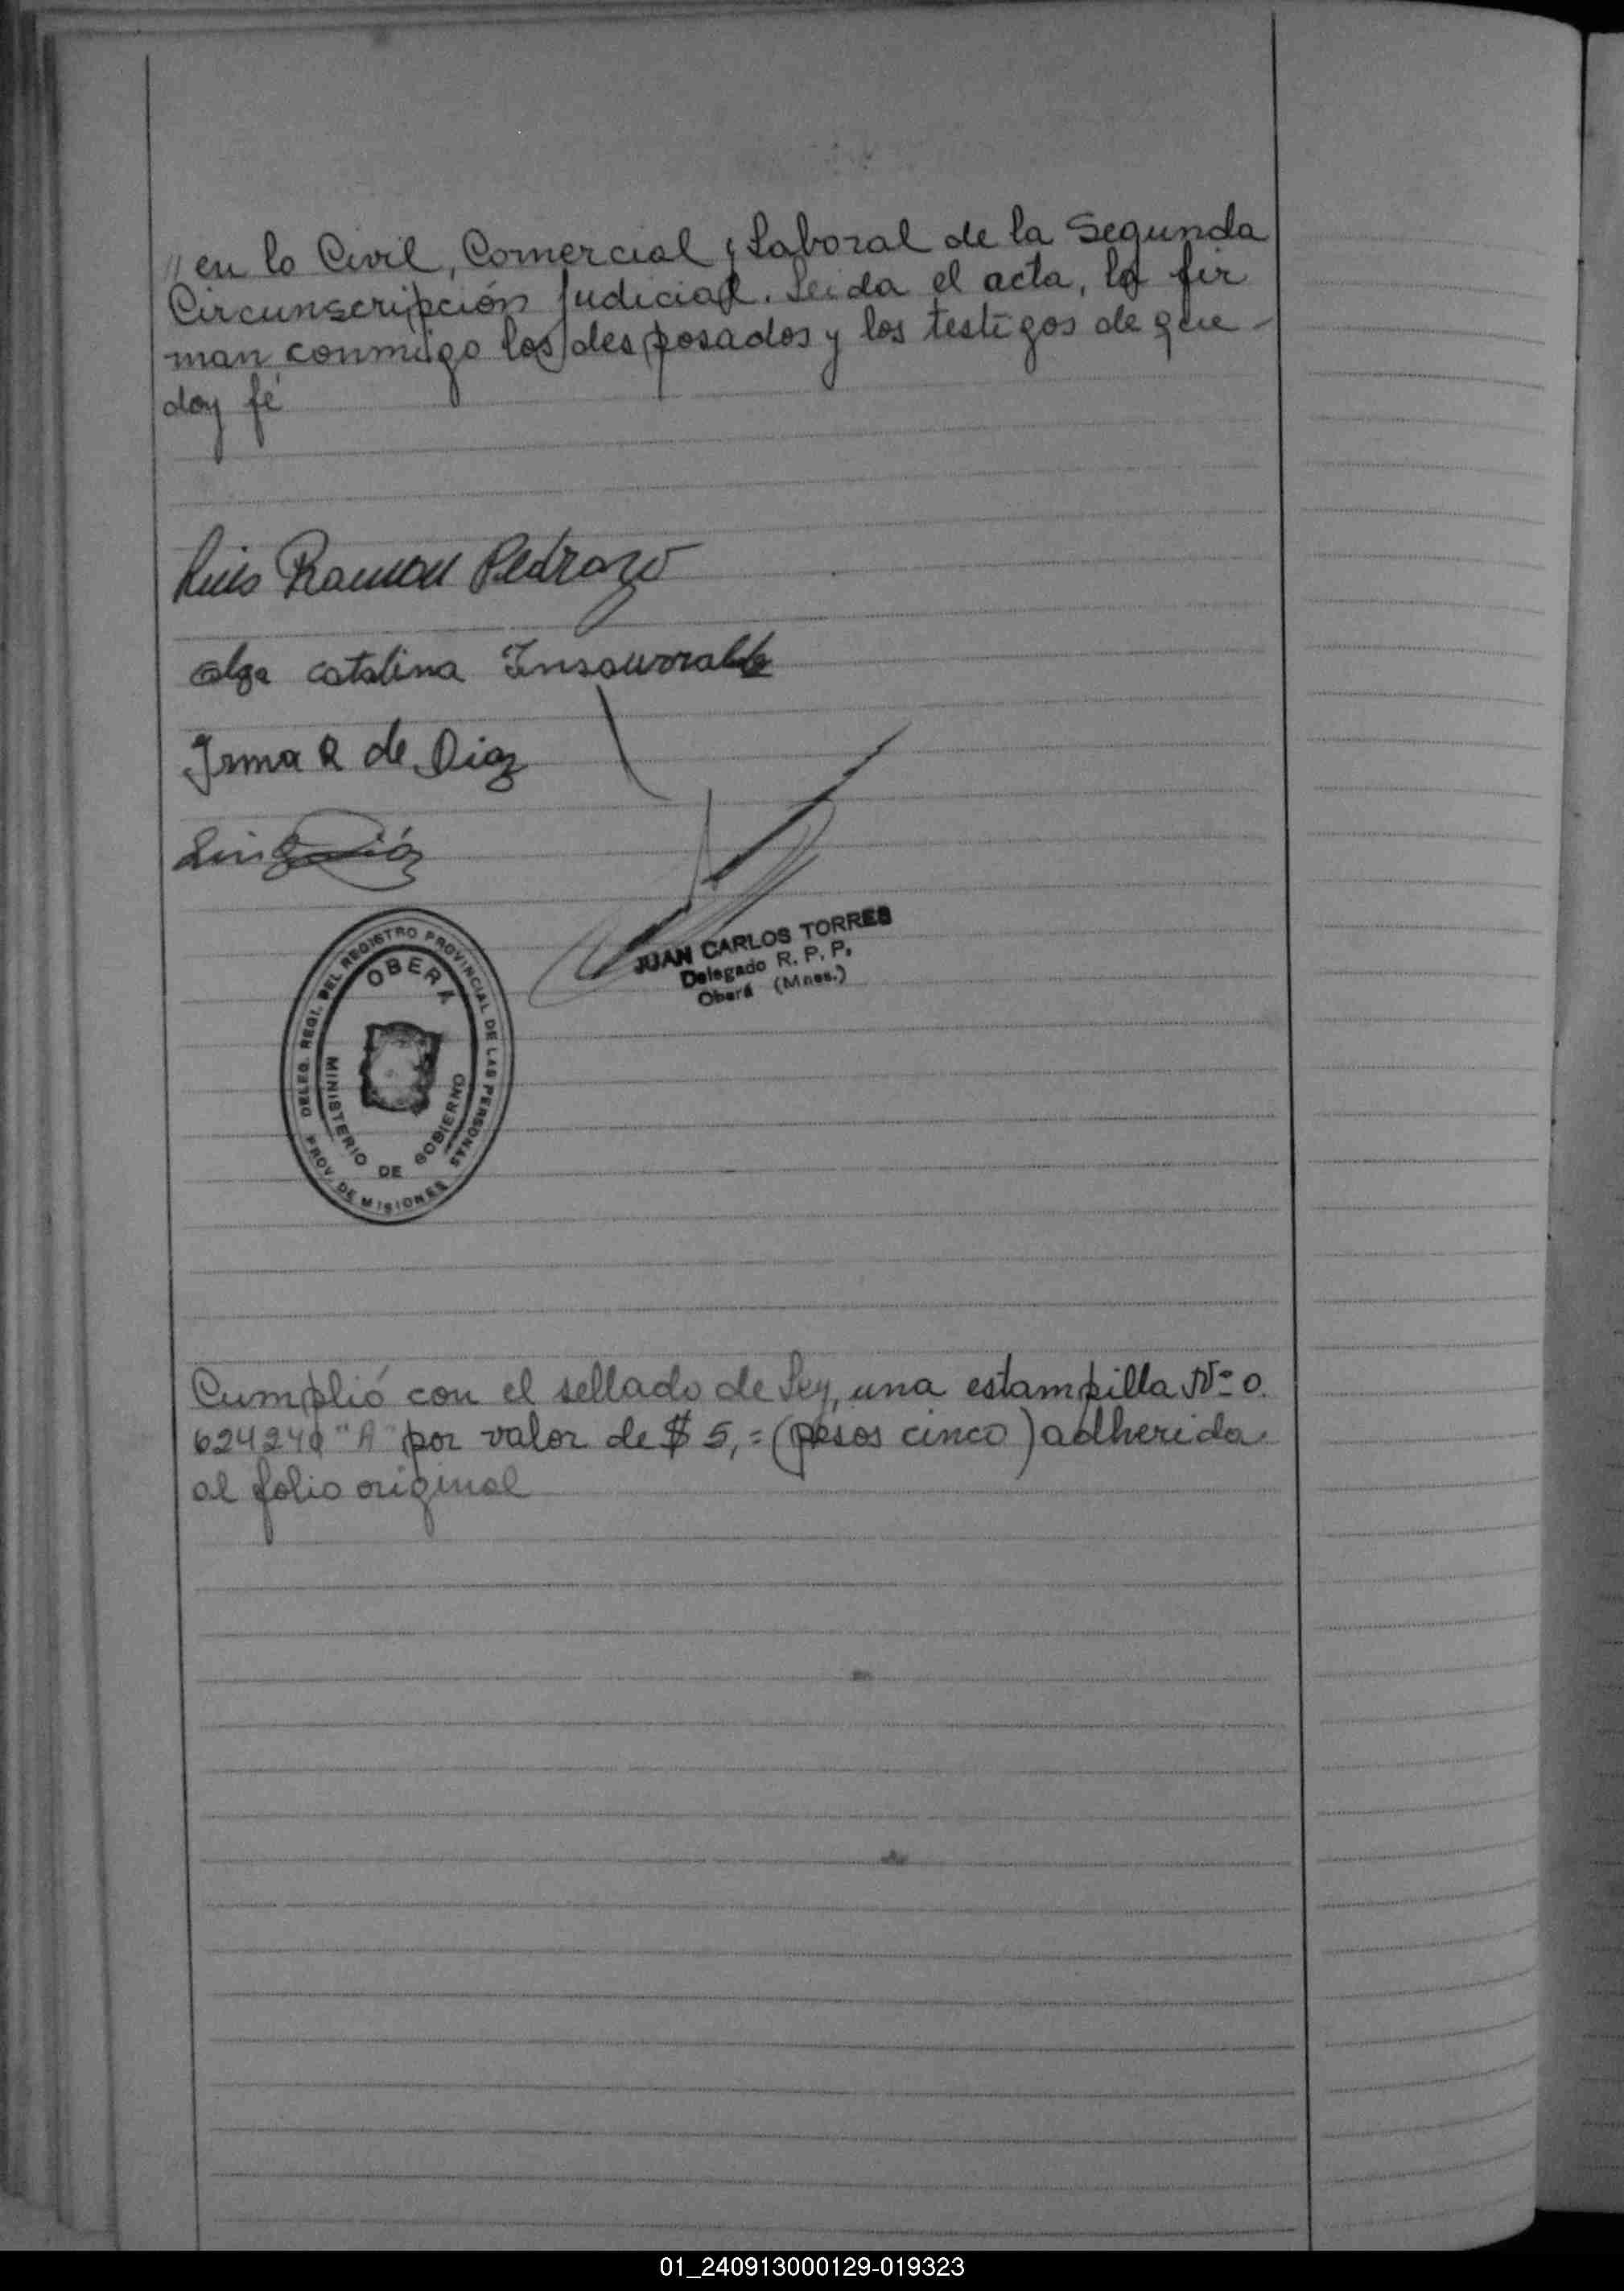 // en lo Civil, Comercial y Laboral de la Segunda
Circunscripción Judicial. Leida el acta, la fir
man conmigo los desposados y los testigos de que -
doy fé
Luis Ramon Pedrozo
Olga catalina Insaurralde
Irma R de Diaz
Luis
JUAN CARLOS TORRES
Delegado R. P. P.
Oberá (Mnes.)
DELEG. REGI. DEL REGISTRO PROVINCIAL DE LAS PERSONAS
OBERÁ
MINISTERIO DE GOBIERNO
PROV. DE MISIONES
Cumplió con el sellado de Ley, una estampilla Nº 0.
624240 "A" por valor de $ 5,= (pesos cinco) adherida
al folio original
01_240913000129-019323